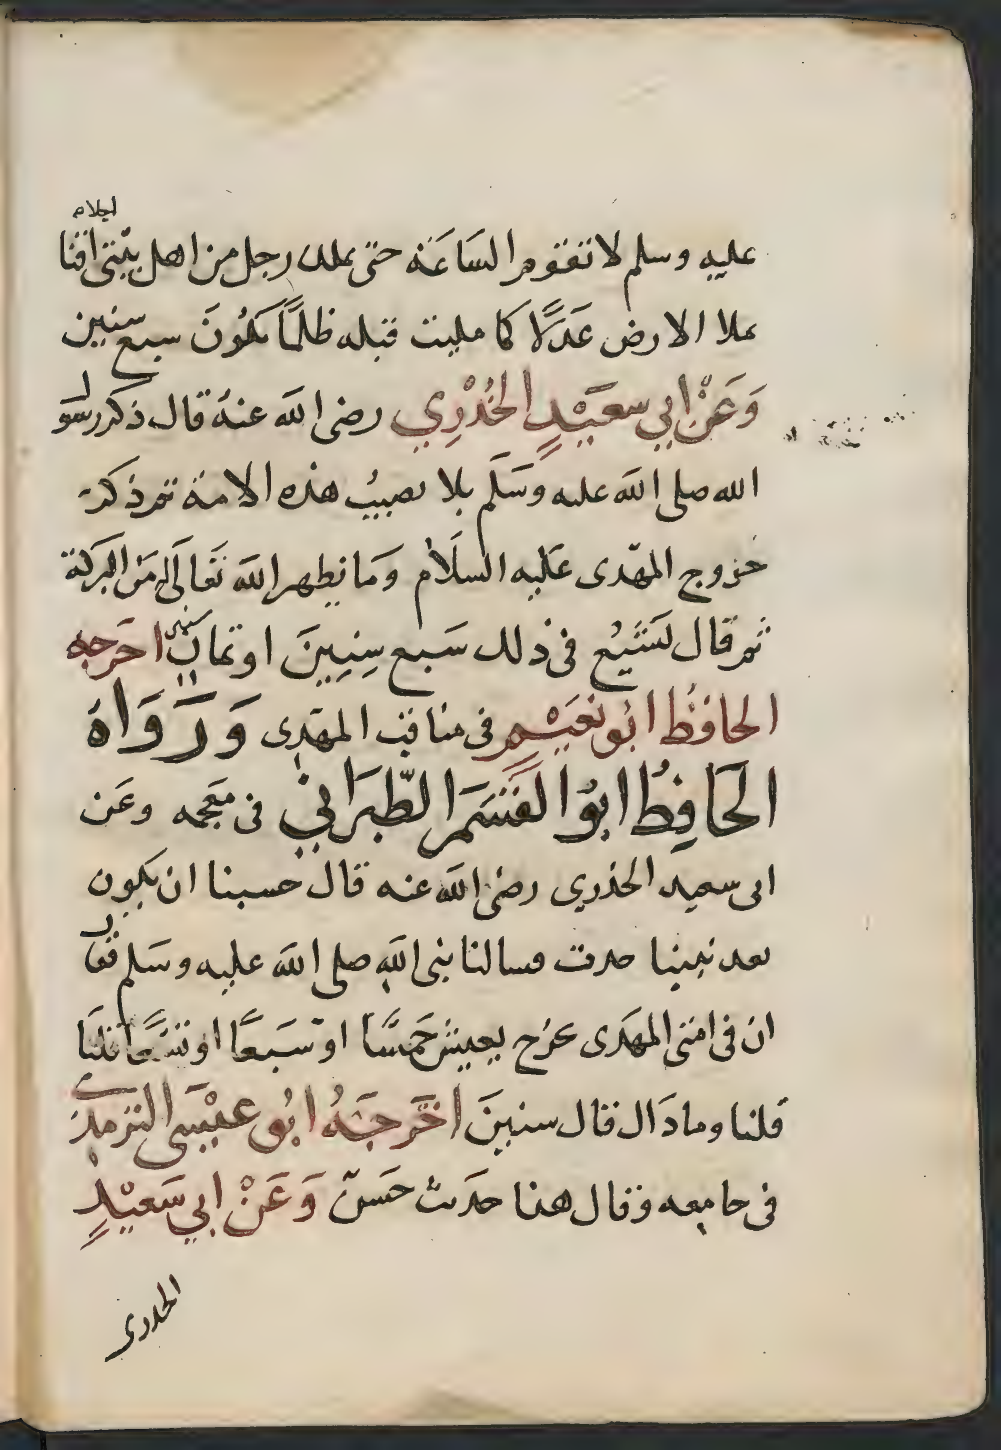 اجلا م
عليه وسلم لا تقوم الساعة حتى يملك رجل من اهل بيتي اقنا
يملا الارض عدلًا كما مليت قبله ظلمًا يكون سبع سنين
وَعَنْ ابي سعيْدٍ الخُدْرِي رضى الله عنه قال ذكر رسول
الله صلى الله عليه وسلم بلا يصيبُ هذه الامة ثم ذكر
خروج المهدى عليه السلام وما يظهر الله تعالى من البركة
ثم قال
في ذلك سَبع سِنِينَ او ثمان سنين اخرجه
الحافظ ابو نعيْم في مناقب المهدى وَرَوَاهُ
الحَافِظُ ابوُ القسَم الطّبَراني في معجمه وعَن
ابى سعيد الخدري رضى الله عنه قال حسبنا ان يكون
بعد نبينا حدث فسالنا نبى الله صلى الله عليه وسلم فقال
ان في امتى المهدى يخرج يعيش خَمسًا او سَبعًا او تسعًا
قلنا وما ذال قال سنينَ اخْرَجَهُ ابُو عيْسى الترمذي
في جامعه وقال هذا حديث حَسَن وَعَنْ ابي سَعيْدٍ
الخدرى